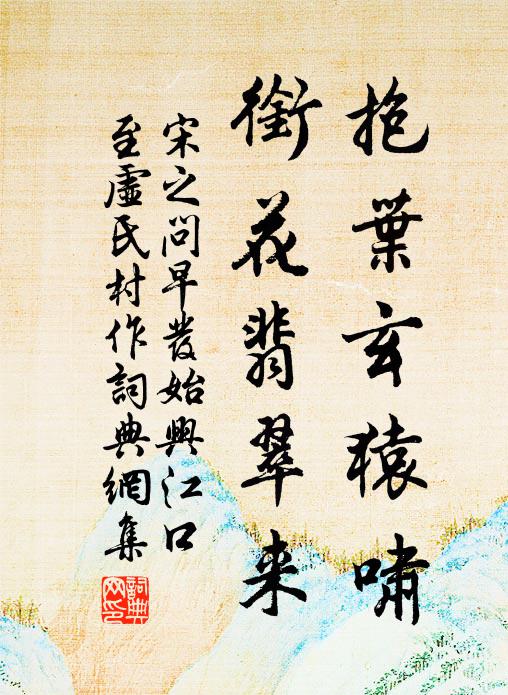 抱葉玄猿嘯
銜花翡翠来
宋之問早發始興江口
至虛氏村作詞典網集
詞典网印